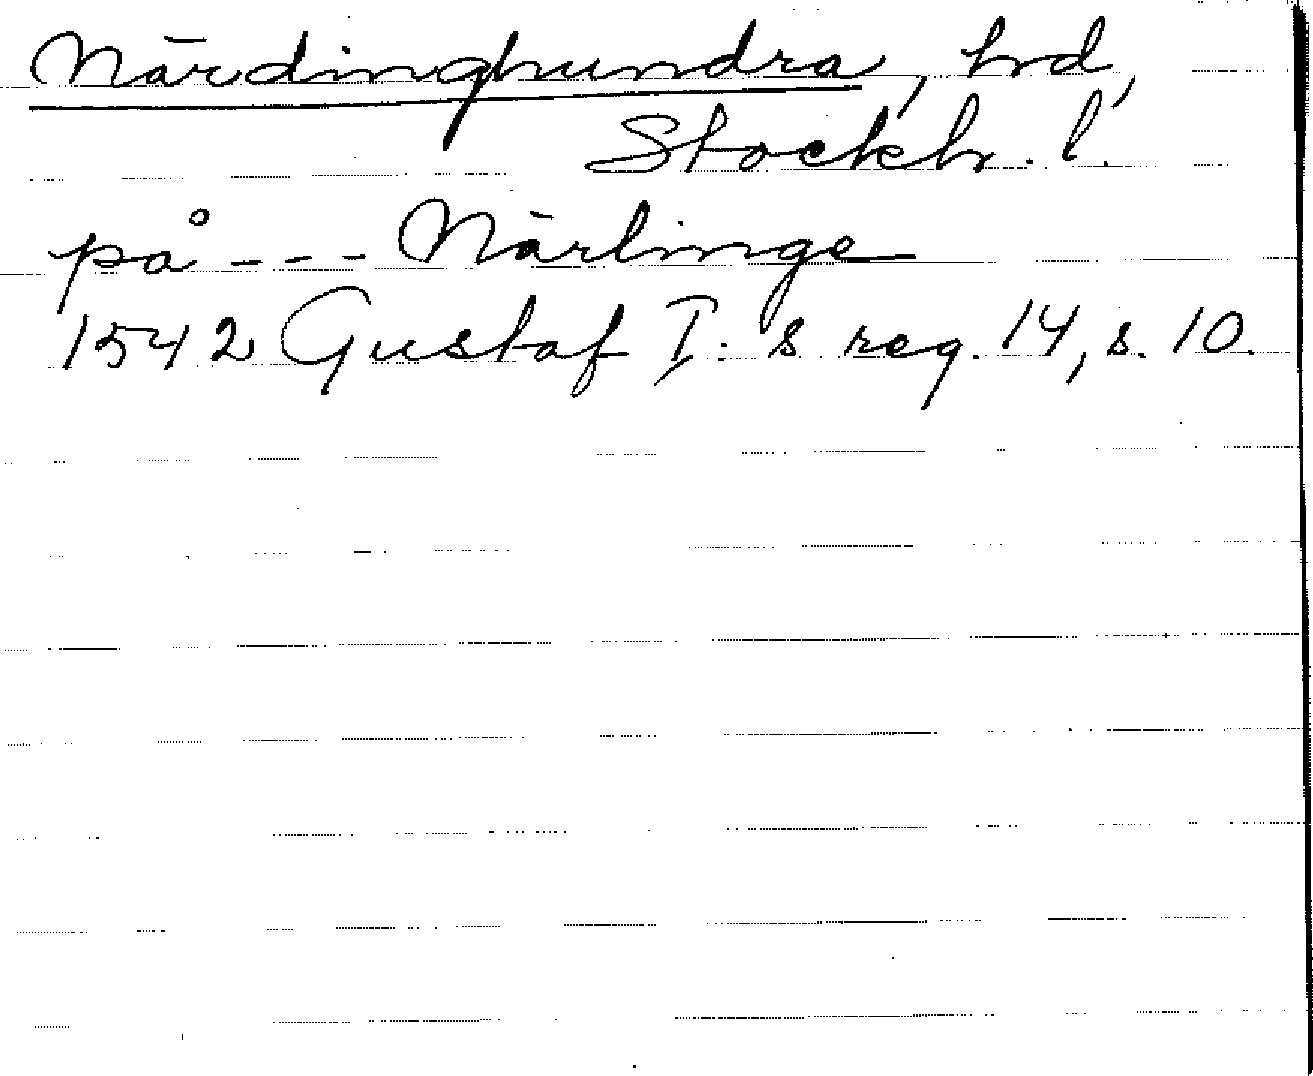 Närdinghundra, hrd,
Stockh. l.
på --- Närlinge
1542 Gustaf I:s reg. 14, s. 10.